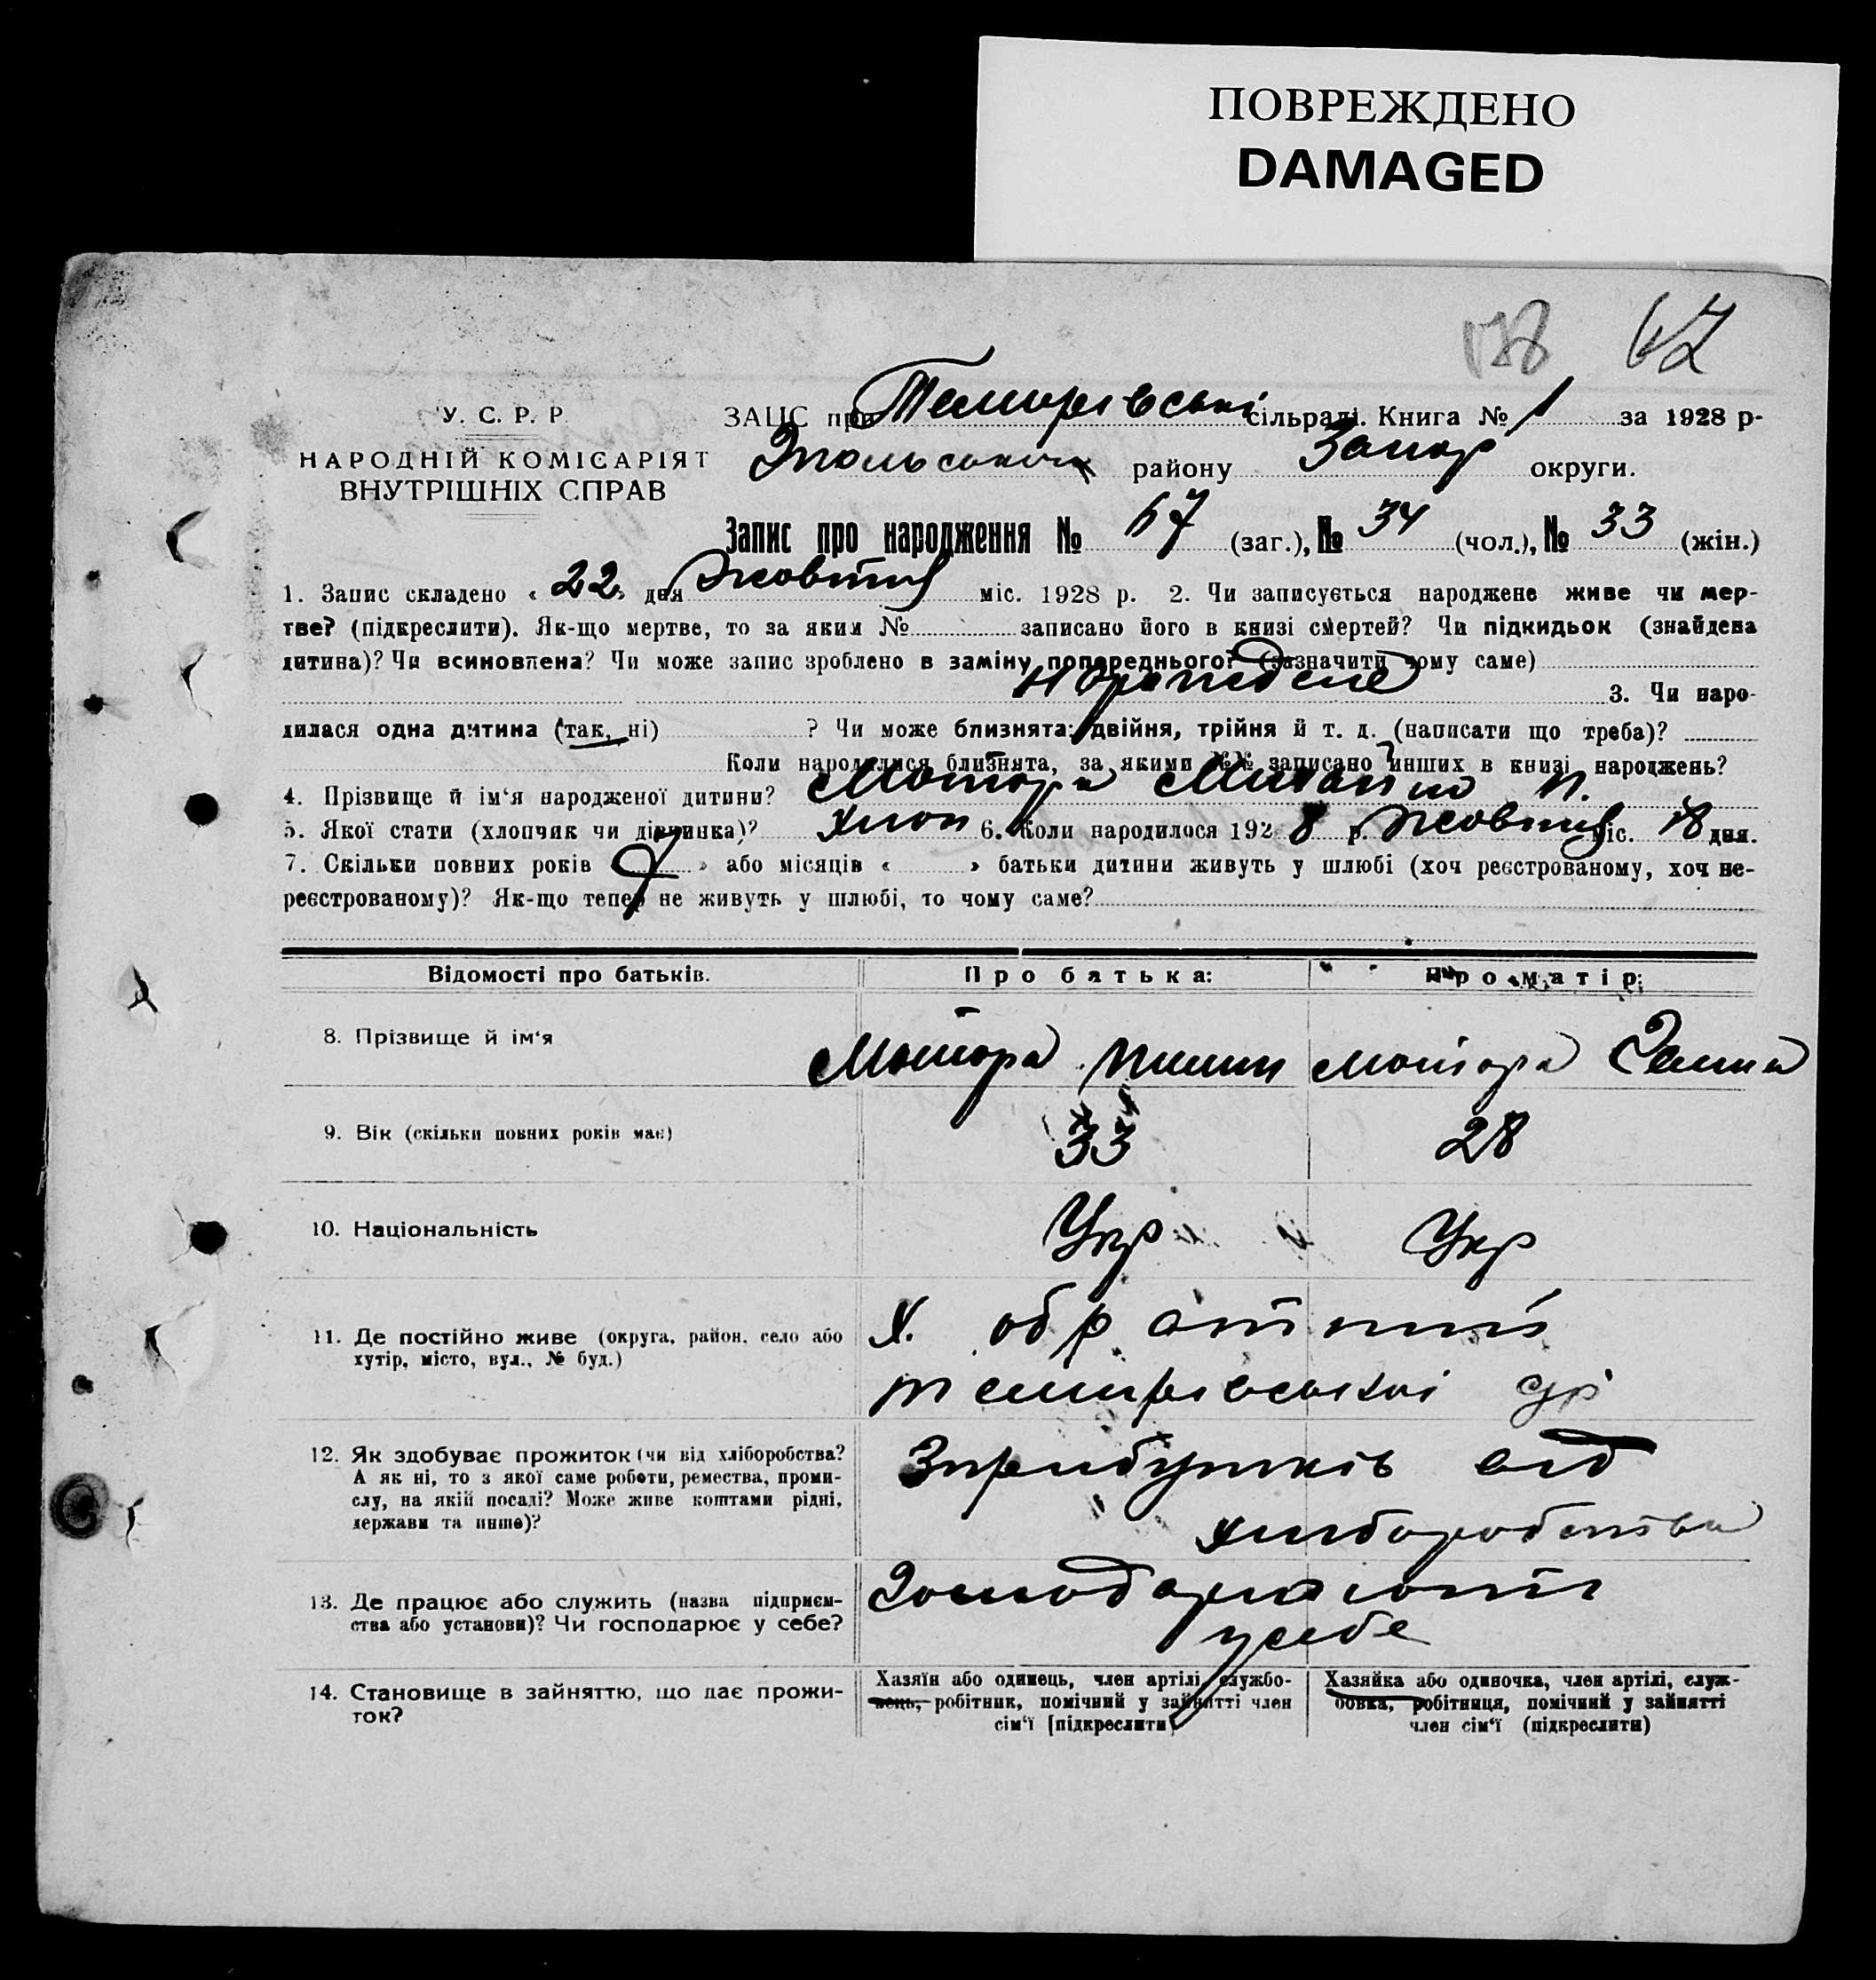 ПОВРЕЖДЕНО
DAMAGED
178 67
У. С. Р. Р.
НАРОДНІЙ КОМІСАРІЯТ
ВНУТРІШНІХ СПРАВ
ЗАЦС при Темирівські сільраді. Книга № 1 за 1928 р-
району Запор округи.
Запис про народження № 67 (заг.), № 34 (чол.), № 33 (жін.)
1. Запис складено « 22 » дня Жовтня міс. 1928 р. 2. Чи записується народжене живе чи мер-
тве? (підкреслити). Як-що мертве, то за яким № записано його в книзі смертей? Чи підкидьок (знайдена
дитина)? Чи всиновлена? Чи може запис зроблено в заміну попереднього? (зазначити чому саме)
3. Чи наро-
дилася одна дитина (так, ні) ? Чи може близнята: двійня, трійня й т. д. (написати що треба)?
Коли народилися близнята, за якими №№ записано инших в книзі народжень?
4. Прізвище й ім'я народженої дитини? Мотора Михайло П.
5. Якої стати (хлопчик чи дівчинка)? Хлоп 6. Коли народилося 192 8 р. Жовтня міс. 18 дня.
7. Скільки повних років « 9 » або місяців « » батьки дитини живуть у шлюбі (хоч реєстрованому, хоч не-
реєстрованому)? Як-що тепер не живуть у шлюбі, то чому саме?
Відомості про батьків. Про батька: Про матір:
8. Прізвище й ім'я Мотора Пилип Мотора Ганна
9. Вік (скільки повних років має) 33 28
10. Національність Укр Укр
11. Де постійно живе (округа, район, село або
хутір, місто, вул., № буд.)
х.
Темирівської с/р
12. Як здобуває прожиток (чи від хліборобства?
А як ні, то з якої саме роботи, ремества, проми-
слу, на якій посаді? Може живе коштами рідні,
держави та инше)?
З прибутків від
хліборобства
13. Де працює або служить (назва підприєм-
ства або установи)? Чи господарює у себе?
Господарюють
у себе
14. Становище в зайняттю, що дає прожи-
ток?
Хазяїн або одинець, член артілі, службо-
вець, робітник, помічний у зайнятті член
сім'ї [підкреслити]
Хазяйка або одиночка, член артілі, служ-
бовка, робітниця, помічний у зайнятті
член сім'ї (підкреслити)